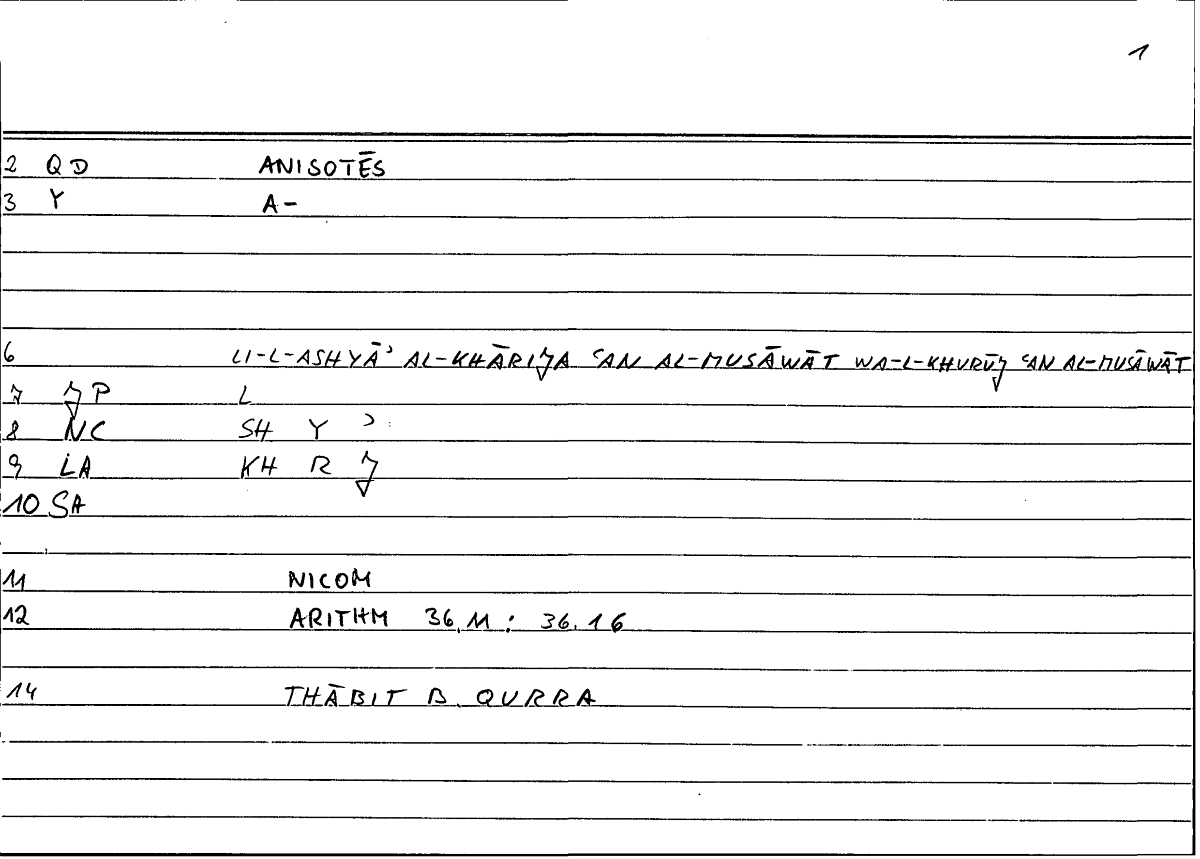 1
2 QD ANISOTĒS
3 Y A-
6 LI-L-ASHYĀʾ AL-KHĀRIJA ʿAN AL-MUSĀWĀT WA-L-KHURŪJ ʿAN AL-MUSĀWĀT
7 JP L
8 NC SH Y ʾ
9 LA KH R J
10 SA
11 NICOM
12 ARITHM 36,11 : 36.16
14 THĀBIT B. QURRA